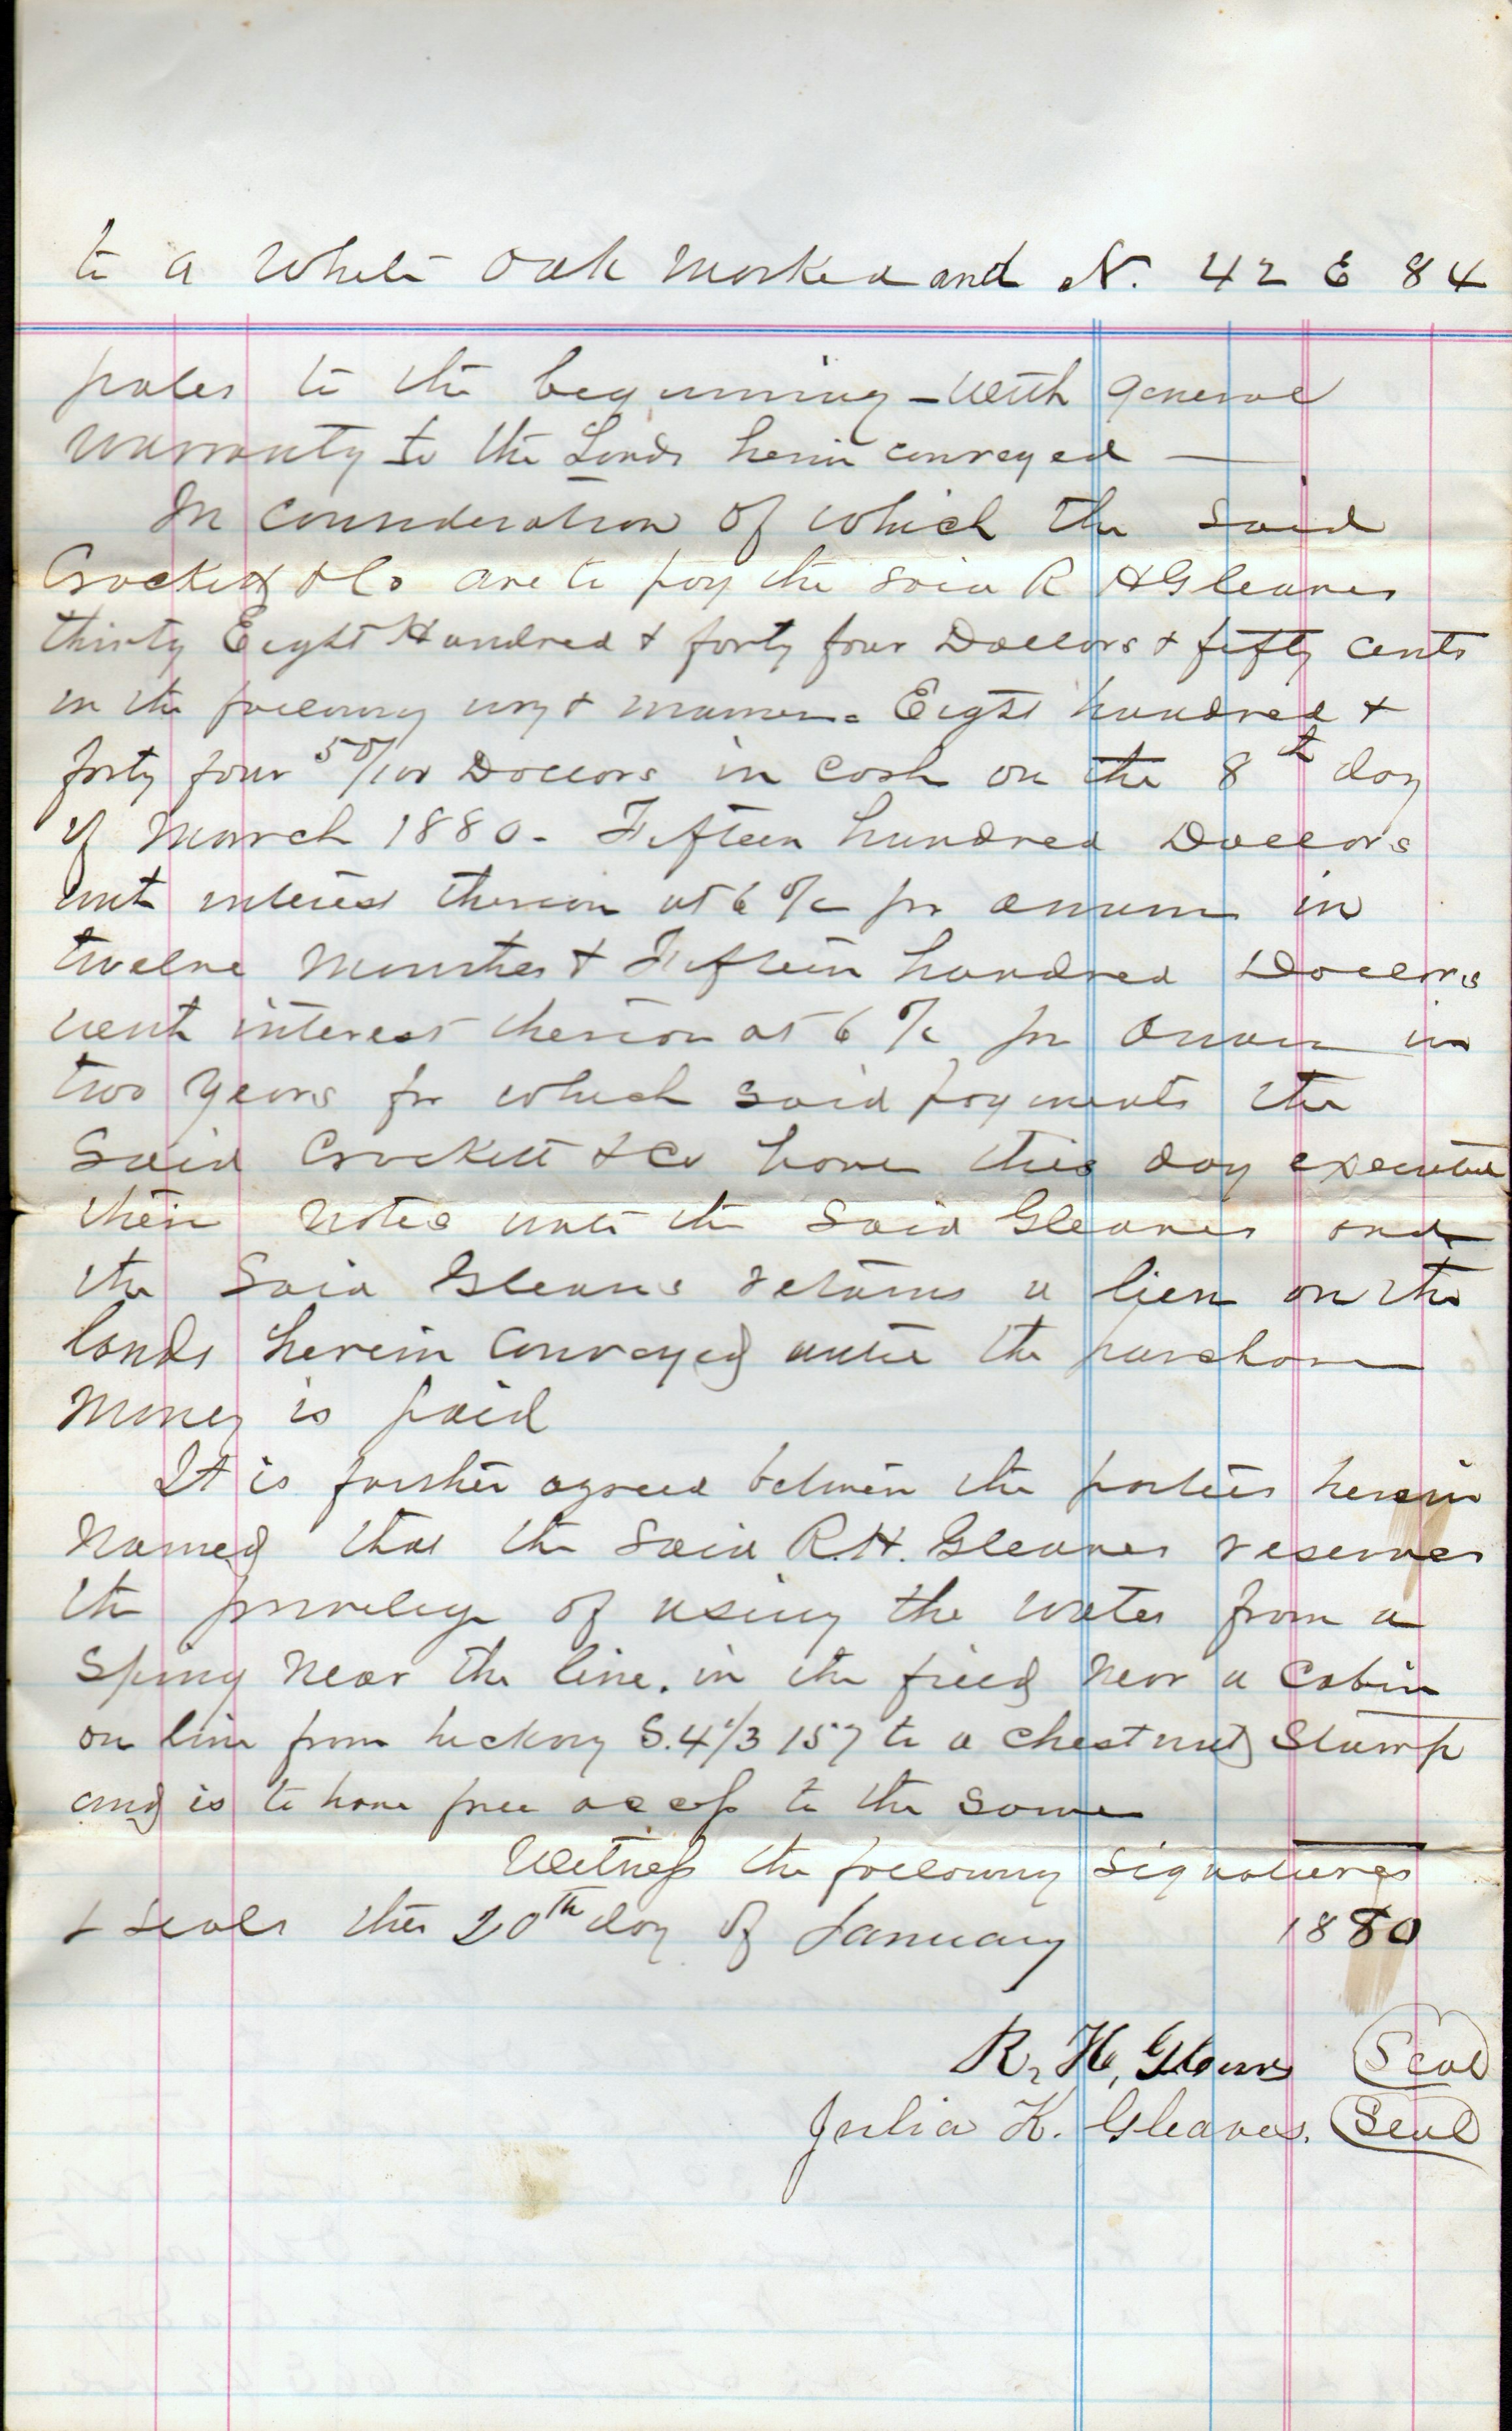 to a White Oak Marked and N. 42 E 84
poles to the beginning - With general
warranty to the Lands herein conveyed —
In consideration of which the said
Crockett & Co are to pay the said R H Gleaves
thirty Eight Hundred & forty four Dollars & fifty cents
in the following way & manner = Eight hundred &
forty four 50/100 Dollars in cash on the 8th day
of March 1880 - Fifteen hundred Dollars
with interest thereon at 6 % pr annum in
twelve Months & Fifteen hundred Dollars
with interest thereon at 6 % pr annum in
two years for which said payments the
Said Crockett & Co have this day executed
their notes unto the said Gleaves and
the Said Gleaves retains a lien on the
lands herein Conveyed until the purchase
Money is paid
It is further agreed between the parties herein
Named that the said R.H. Gleaves reserves
the privilege of using the water from a
Sping Near the line. in the field near a Cabin
on line from hickory S. 157 to a chestnut Stump
and is to have free access to the same
Witness the following signatures
& seals this 20th day of January 1880
R. H. Gleaves Seal
Julia K. Gleaves. Seal